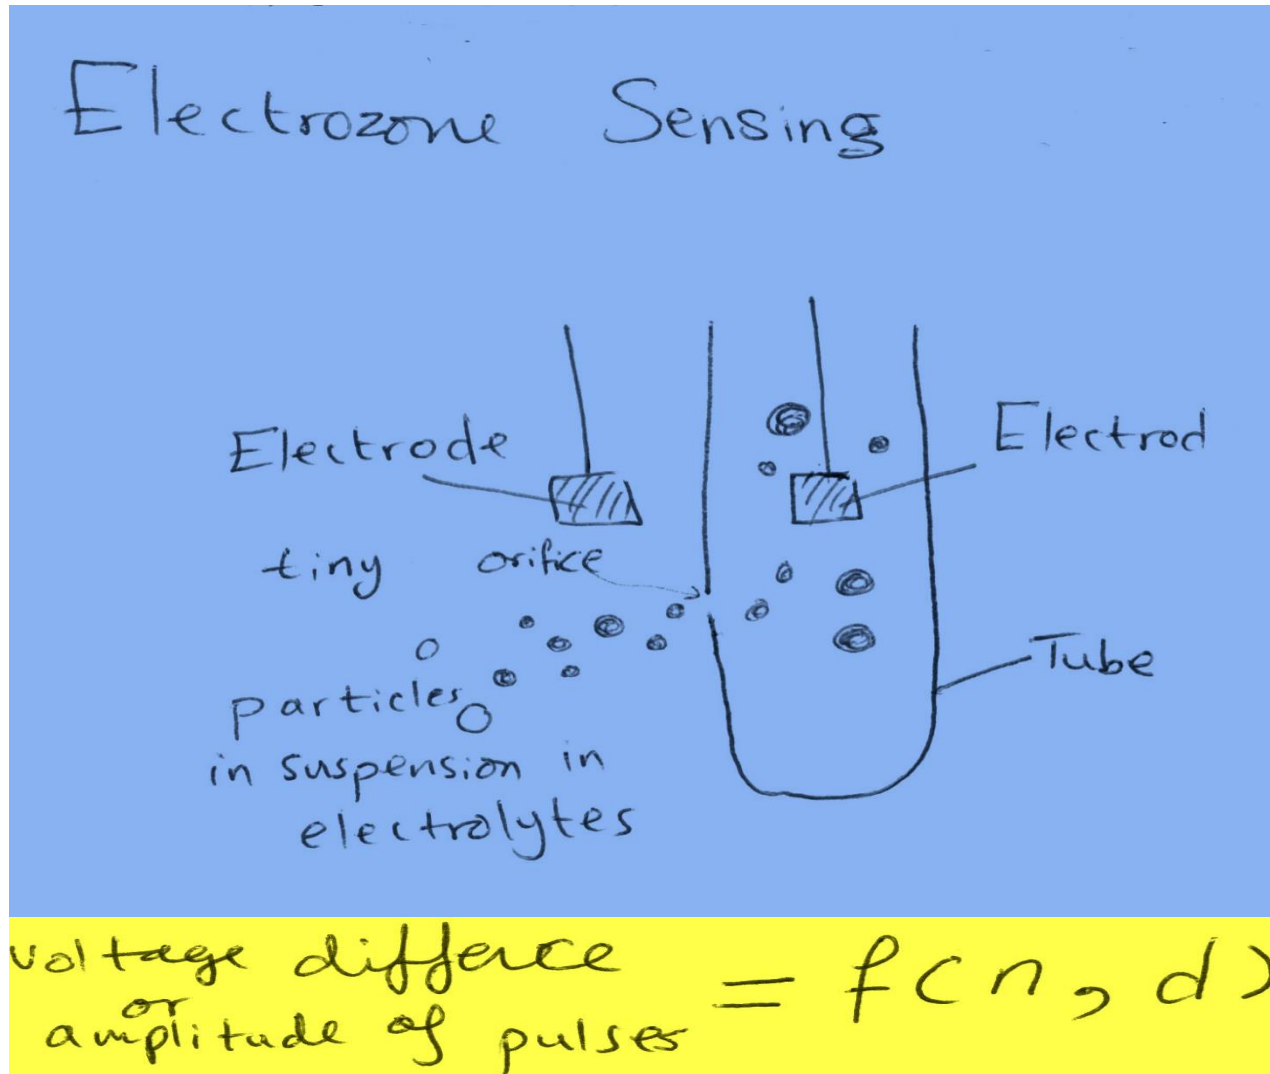 Electrozone Sensing
Electrode
Electrod
tiny orifice
Tube
particles
in suspension in
electrolytes
voltage differce
or
amplitude of pulses
= f(n, d)